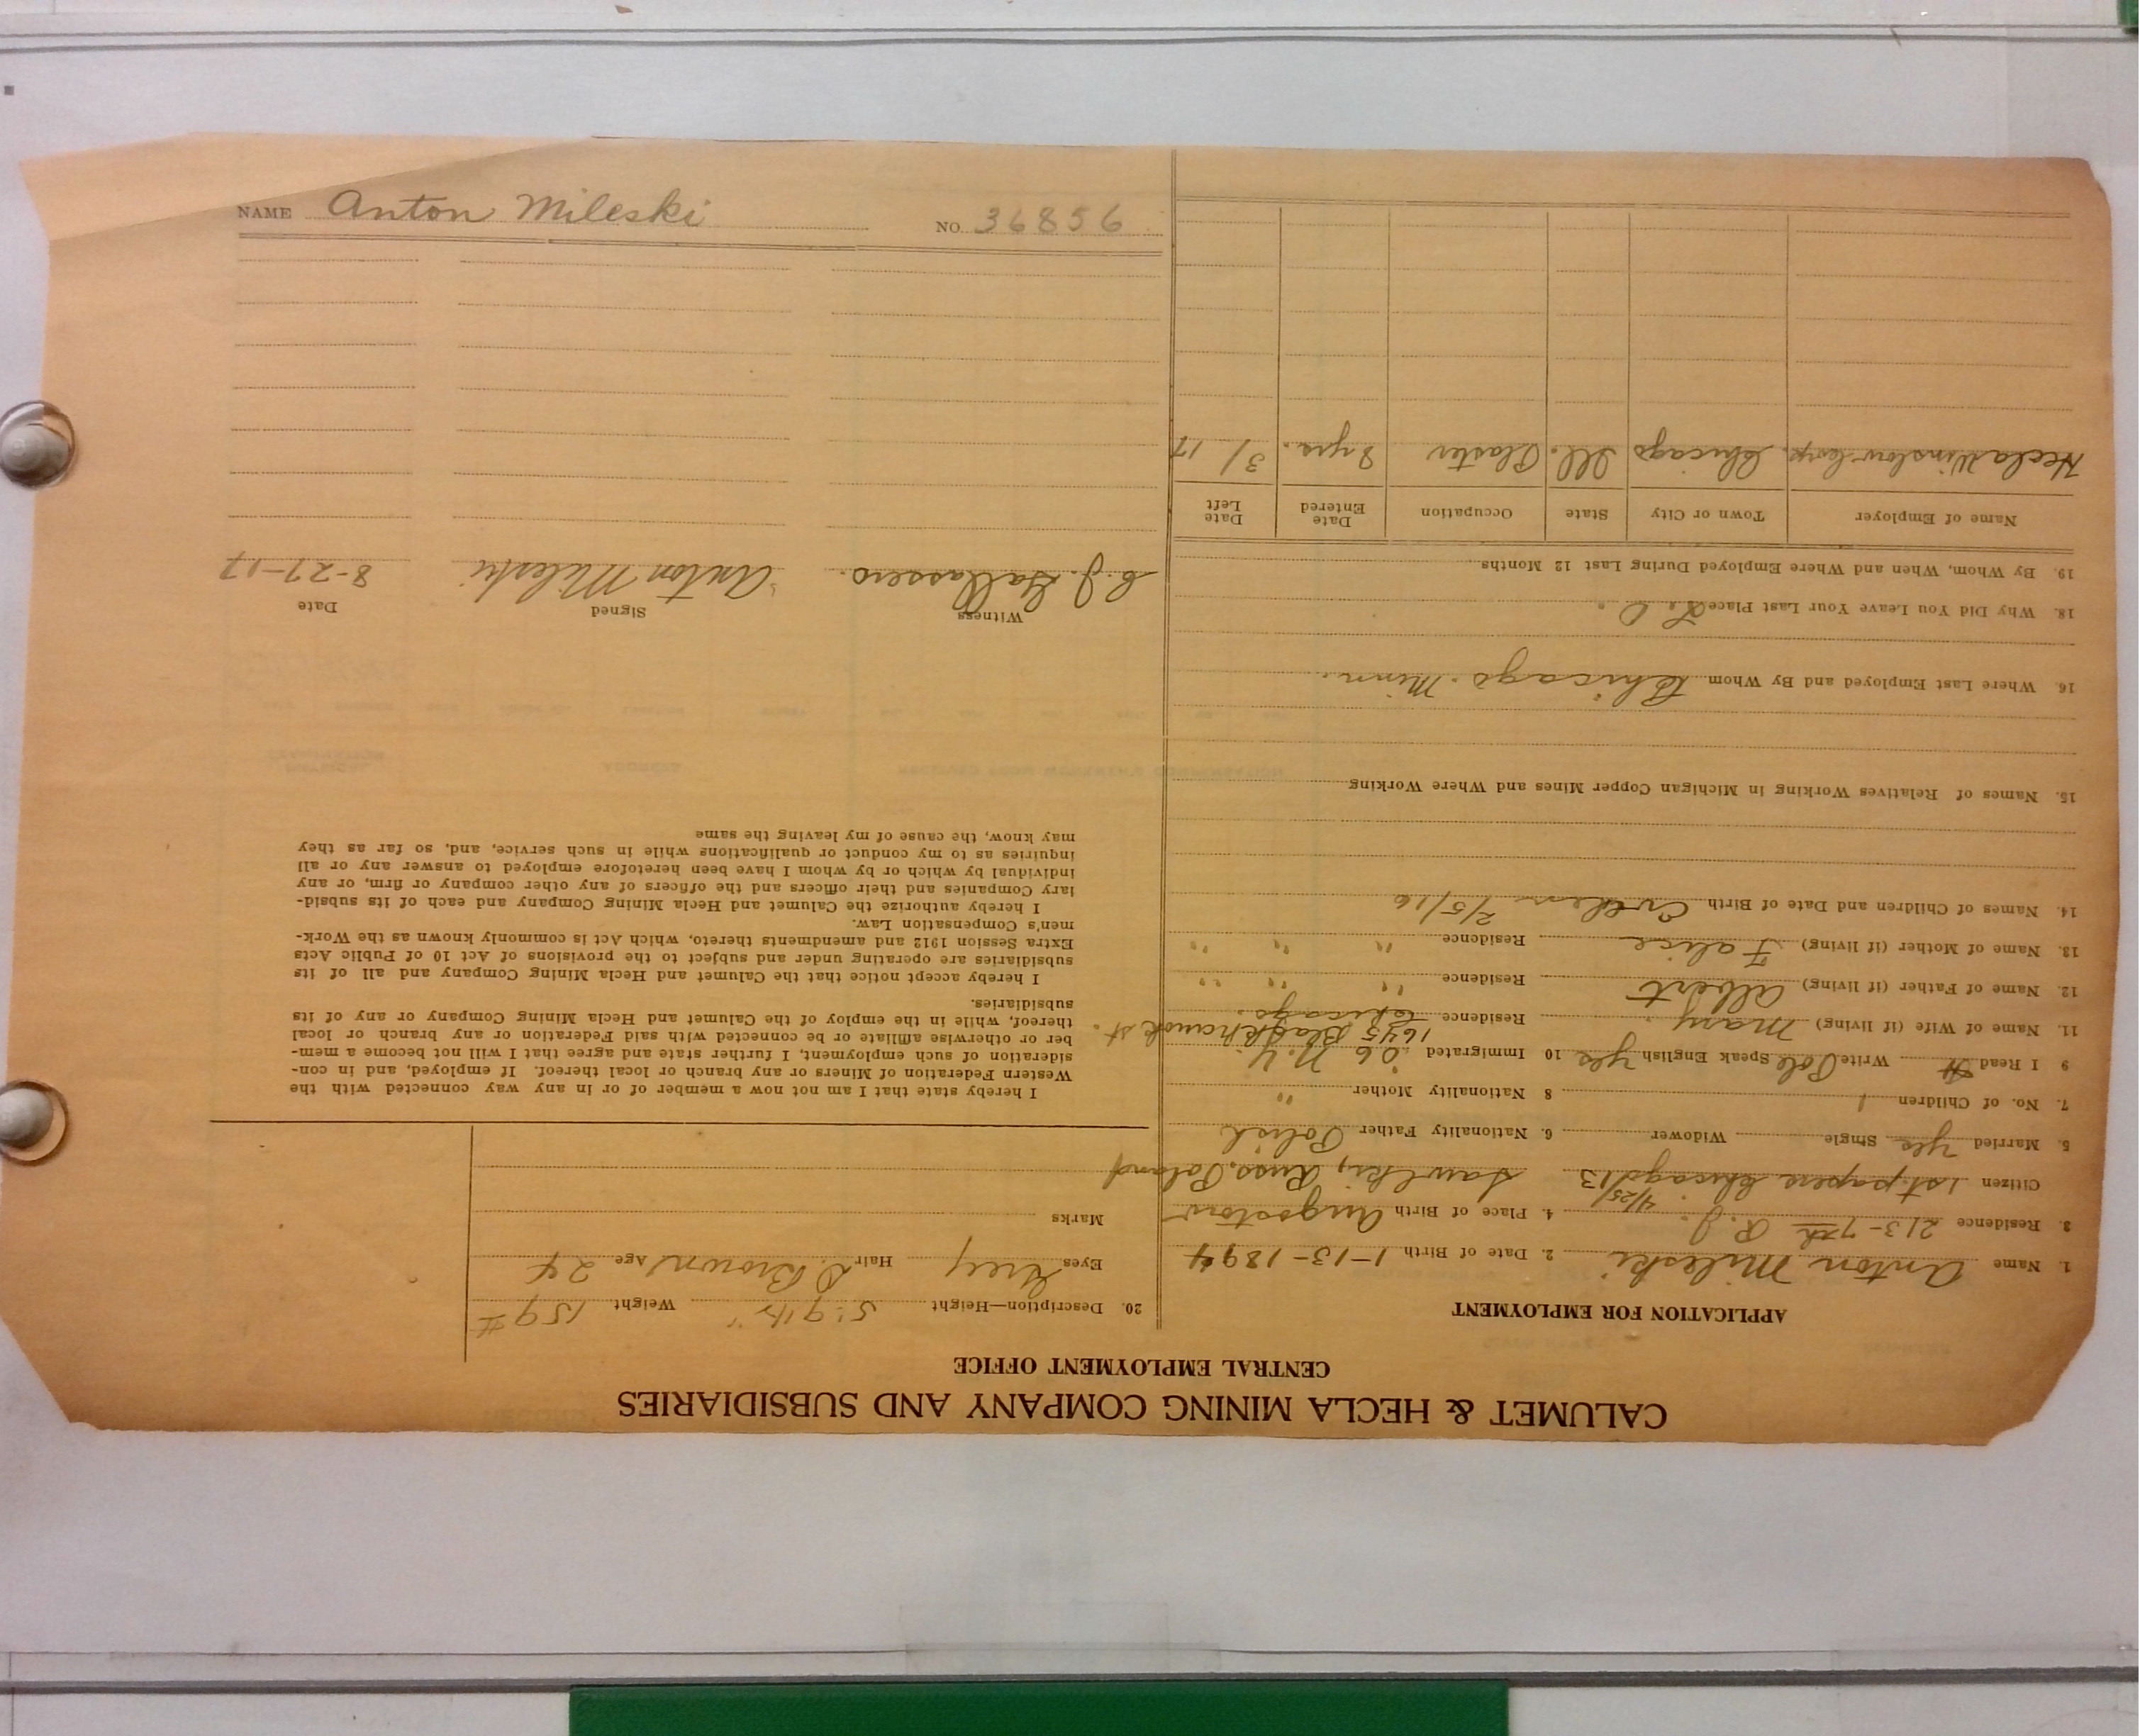 CALUMET & HECLA MINING COMPANY AND SUBSIDIARIES
CENTRAL EMPLOYMENT OFFICE
APPLICATION FOR EMPLOYMENT
1. Name Anton Mileski 2. Date of Birth 1-13-1894
3. Residence 213-7th R. J. 4. Place of Birth Augostow
Citizen 1st papers Chicago 4/25/13 Suwlki, Russ. Poland
5. Married yes Single Widower 6. Nationality Father Polish
7. No. of Children 1 8 Nationality Mother " "
9 I Read Write Pole Speak English yes 10 Immigrated '06 N.Y.
11. Name of Wife (if living) Mary Residence 1645 Blackhawk st. Chicago.
12. Name of Father (if living) Albert Residence " " "
13. Name of Mother (if living) Residence " " "
14. Names of Children and Date of Birth 2/5/16
15. Names of Relatives Working in Michigan Copper Mines and Where Working
16. Where Last Employed and By Whom Chicago. Minn.
18. Why Did You Leave Your Last Place
19. By Whom, When and Where Employed During Last 12 Months
Name of Employer Town or City State Occupation Date Entered Date Left
Hecla Winslow Comp. Chicago Ill. Plaster 3/17
20. Description—Height 5' 9 1/2" Weight 159 #
Eyes Grey Hair D. Brown Age 24
Marks
I hereby state that I am not now a member of or in any way connected with the
Western Federation of Miners or any branch or local thereof. If employed, and in con-
sideration of such employment, I further state and agree that I will not become a mem-
ber or otherwise affiliate or be connected with said Federation or any branch or local
thereof, while in the employ of the Calumet and Hecla Mining Company or any of its
subsidiaries.
I hereby accept notice that the Calumet and Hecla Mining Company and all of its
subsidiaries are operating under and subject to the provisions of Act 10 of Public Acts
Extra Session 1912 and amendments thereto, which Act is commonly known as the Work-
men's Compensation Law.
I hereby authorize the Calumet and Hecla Mining Company and each of its subsid-
iary Companies and their officers and the officers of any other company or firm, or any
individual by which or by whom I have been heretofore employed to answer any or all
inquiries as to my conduct or qualifications while in such service, and, so far as they
may know, the cause of my leaving the same
Witness Signed Date
C. J. Gallassero. Anton Mileski 8-27-17
NAME Anton Mileski NO. 36856